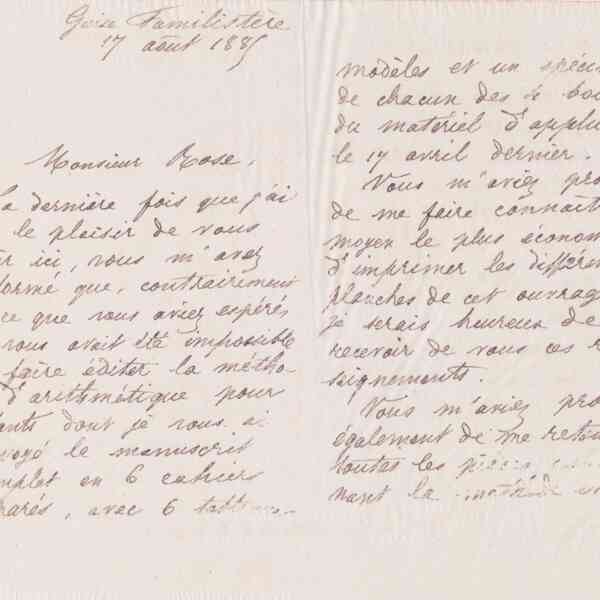 Guise Familistère
17 août 1885
Monsieur Rose,
La dernière fois que j'ai
le plaisir de vous
ir ici, vous m'avez
formé que, contrairement
ce que vous aviez espéré
vous avait été impossible
faire éditer la métho-
d'arithmétique pour
ants dont je vous ai
voyé le manuscrit
mplet en 6 cahiers
parés, avec 6
modèles et un spéci
de chacun des 4 boi
du matériel d'appli
le 17 avril dernier.
Vous m'aviez pro
de me faire connaît
moyen le plus économ
d'imprimer les différen
planches de cet ouvrag
je serais heureux de
recevoir de vous ces r
seignements.
Vous m'aviez pro
également de me retou
toutes les pièces
nant la méthode